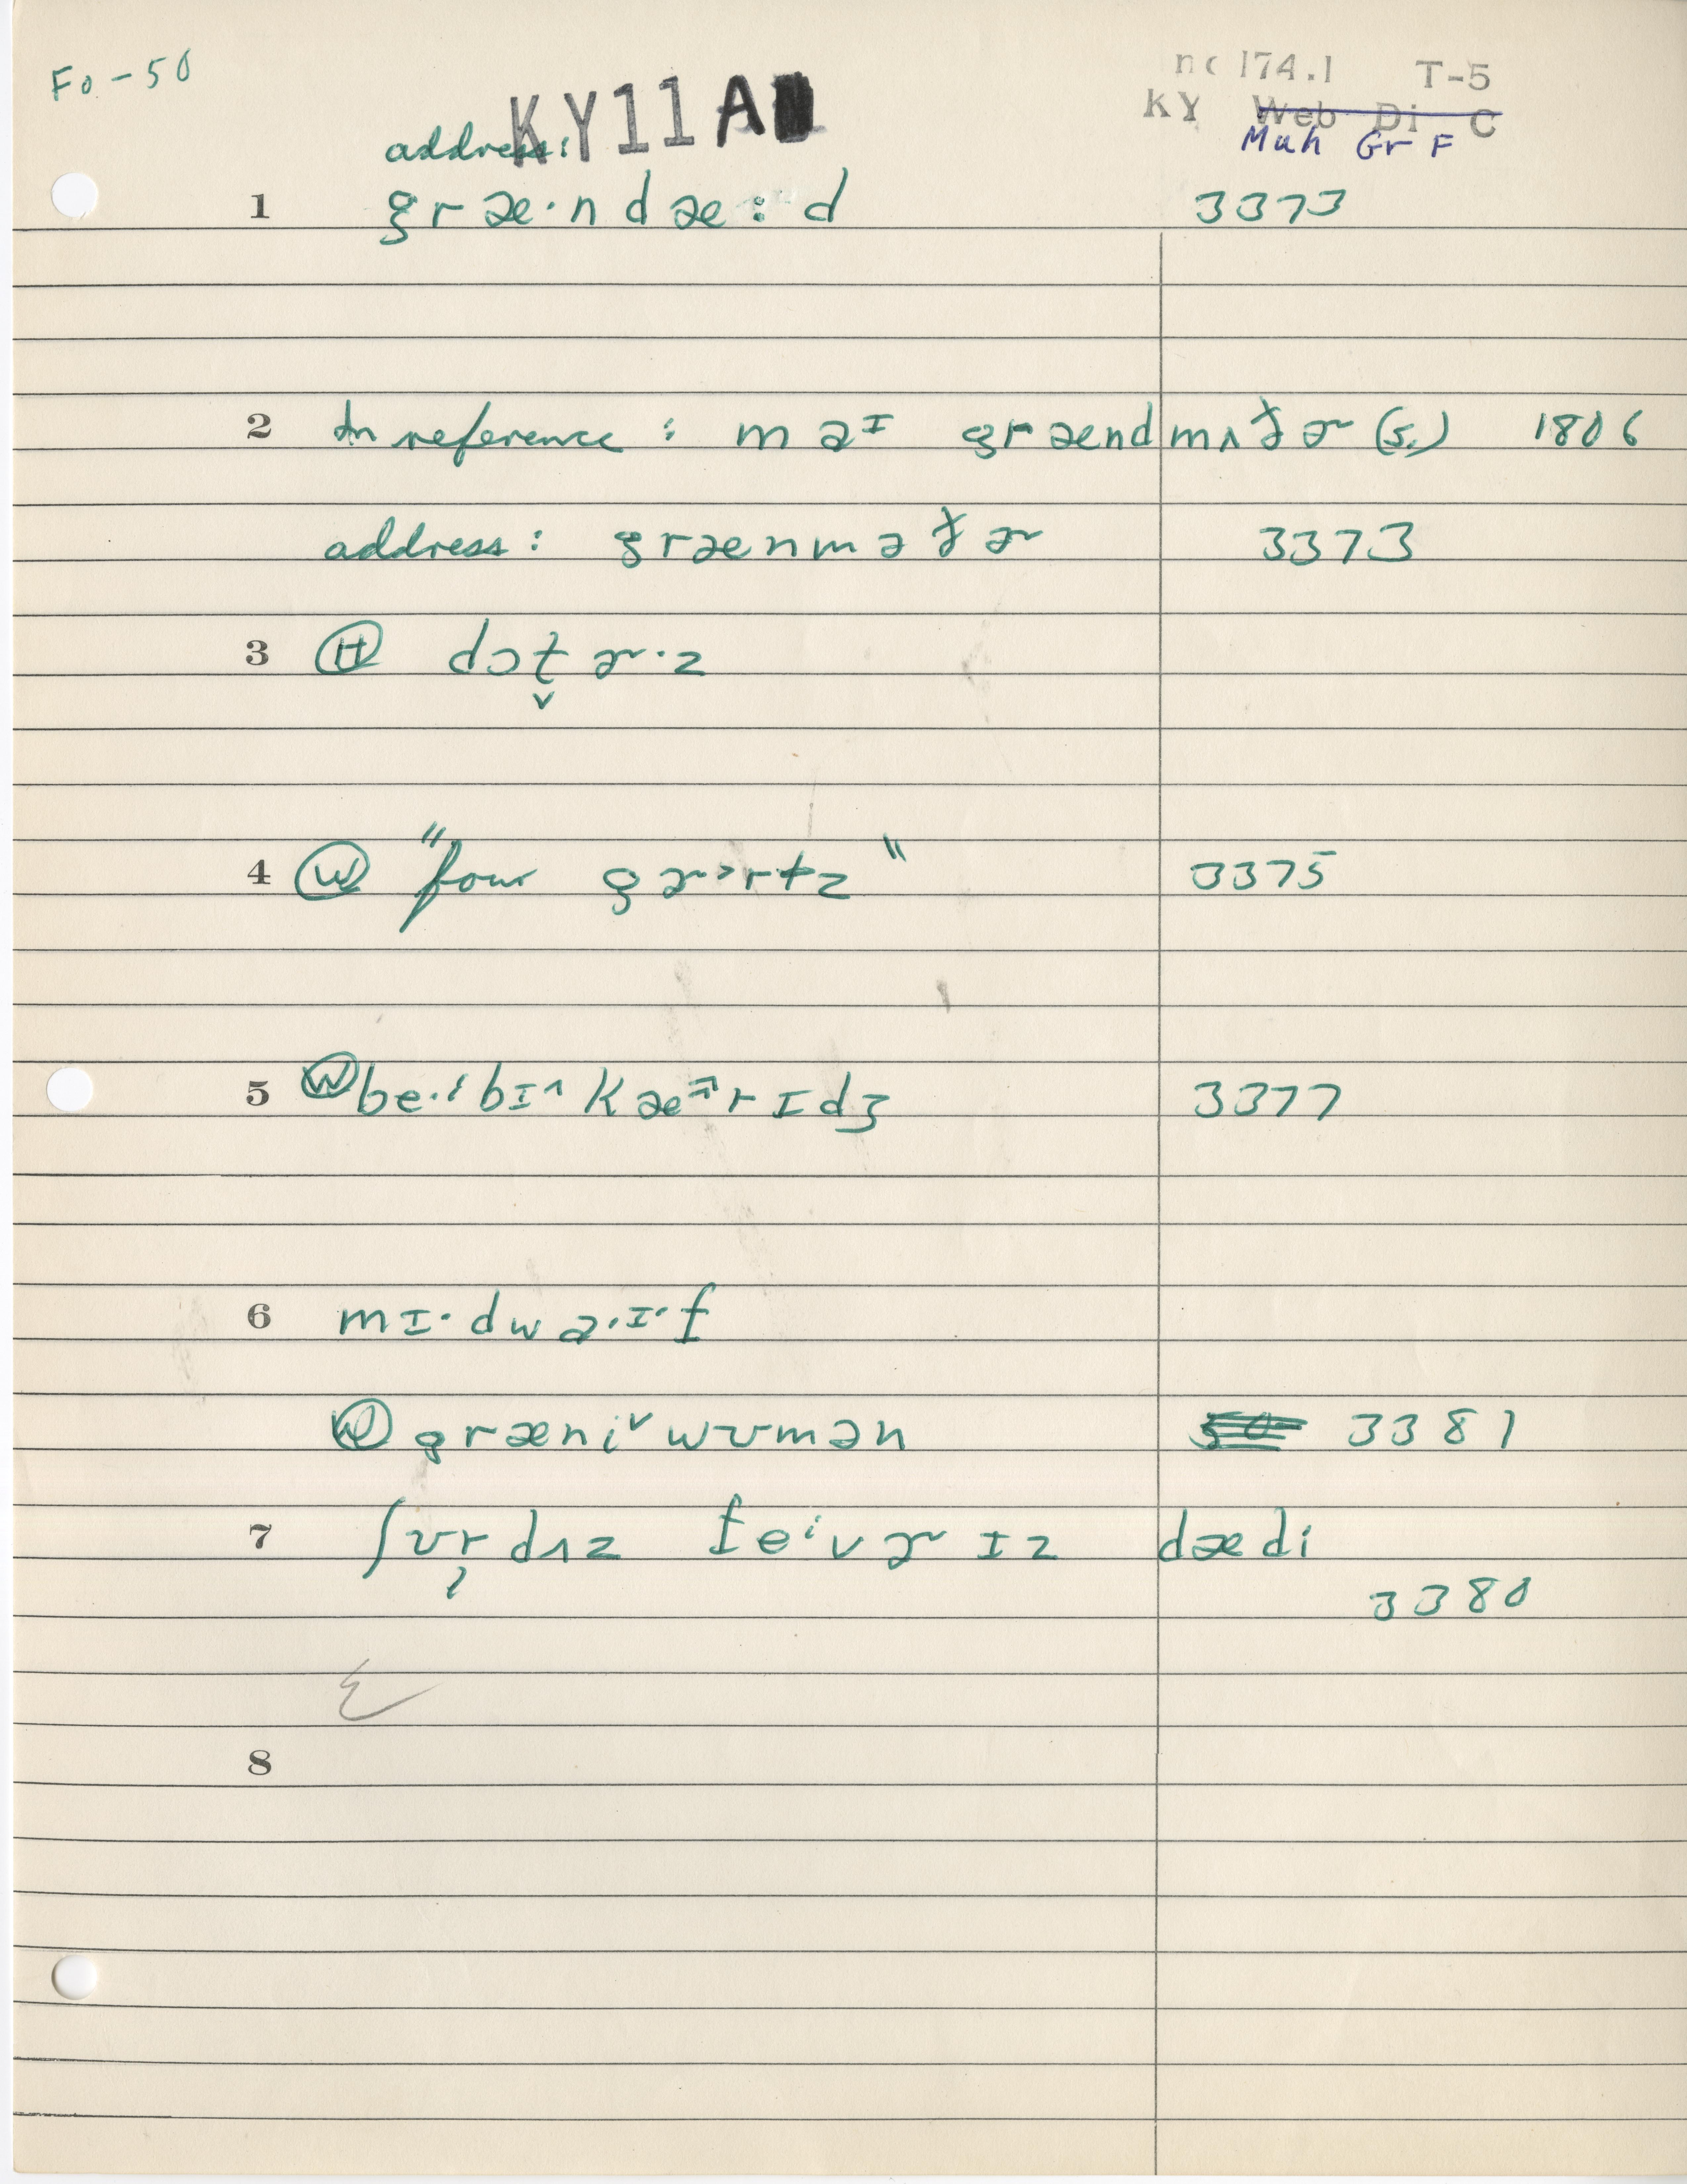 Fo-50
KY11A
nc 174.1 T-5
KY Web Di C
Muh Gr F
address:
1 græ·ndæ:d 3373
2 In reference: maɪ grændmʌðɚ (s.) 1806
address: grænməðɚ 3373
3 Ⓗ dɔt̬ɚ·z
4 Ⓦ "four gɚ˃rtz" 3375
5 Ⓦ be·ⁱbɪ^kæ rɪdʒ 3377
6 mɪ·dwa·ɪ·f
Ⓦ græniᵛwʊmən 3381
7 ʃʊr dʌz feⁱvɚ ɪz dædi
3380
8